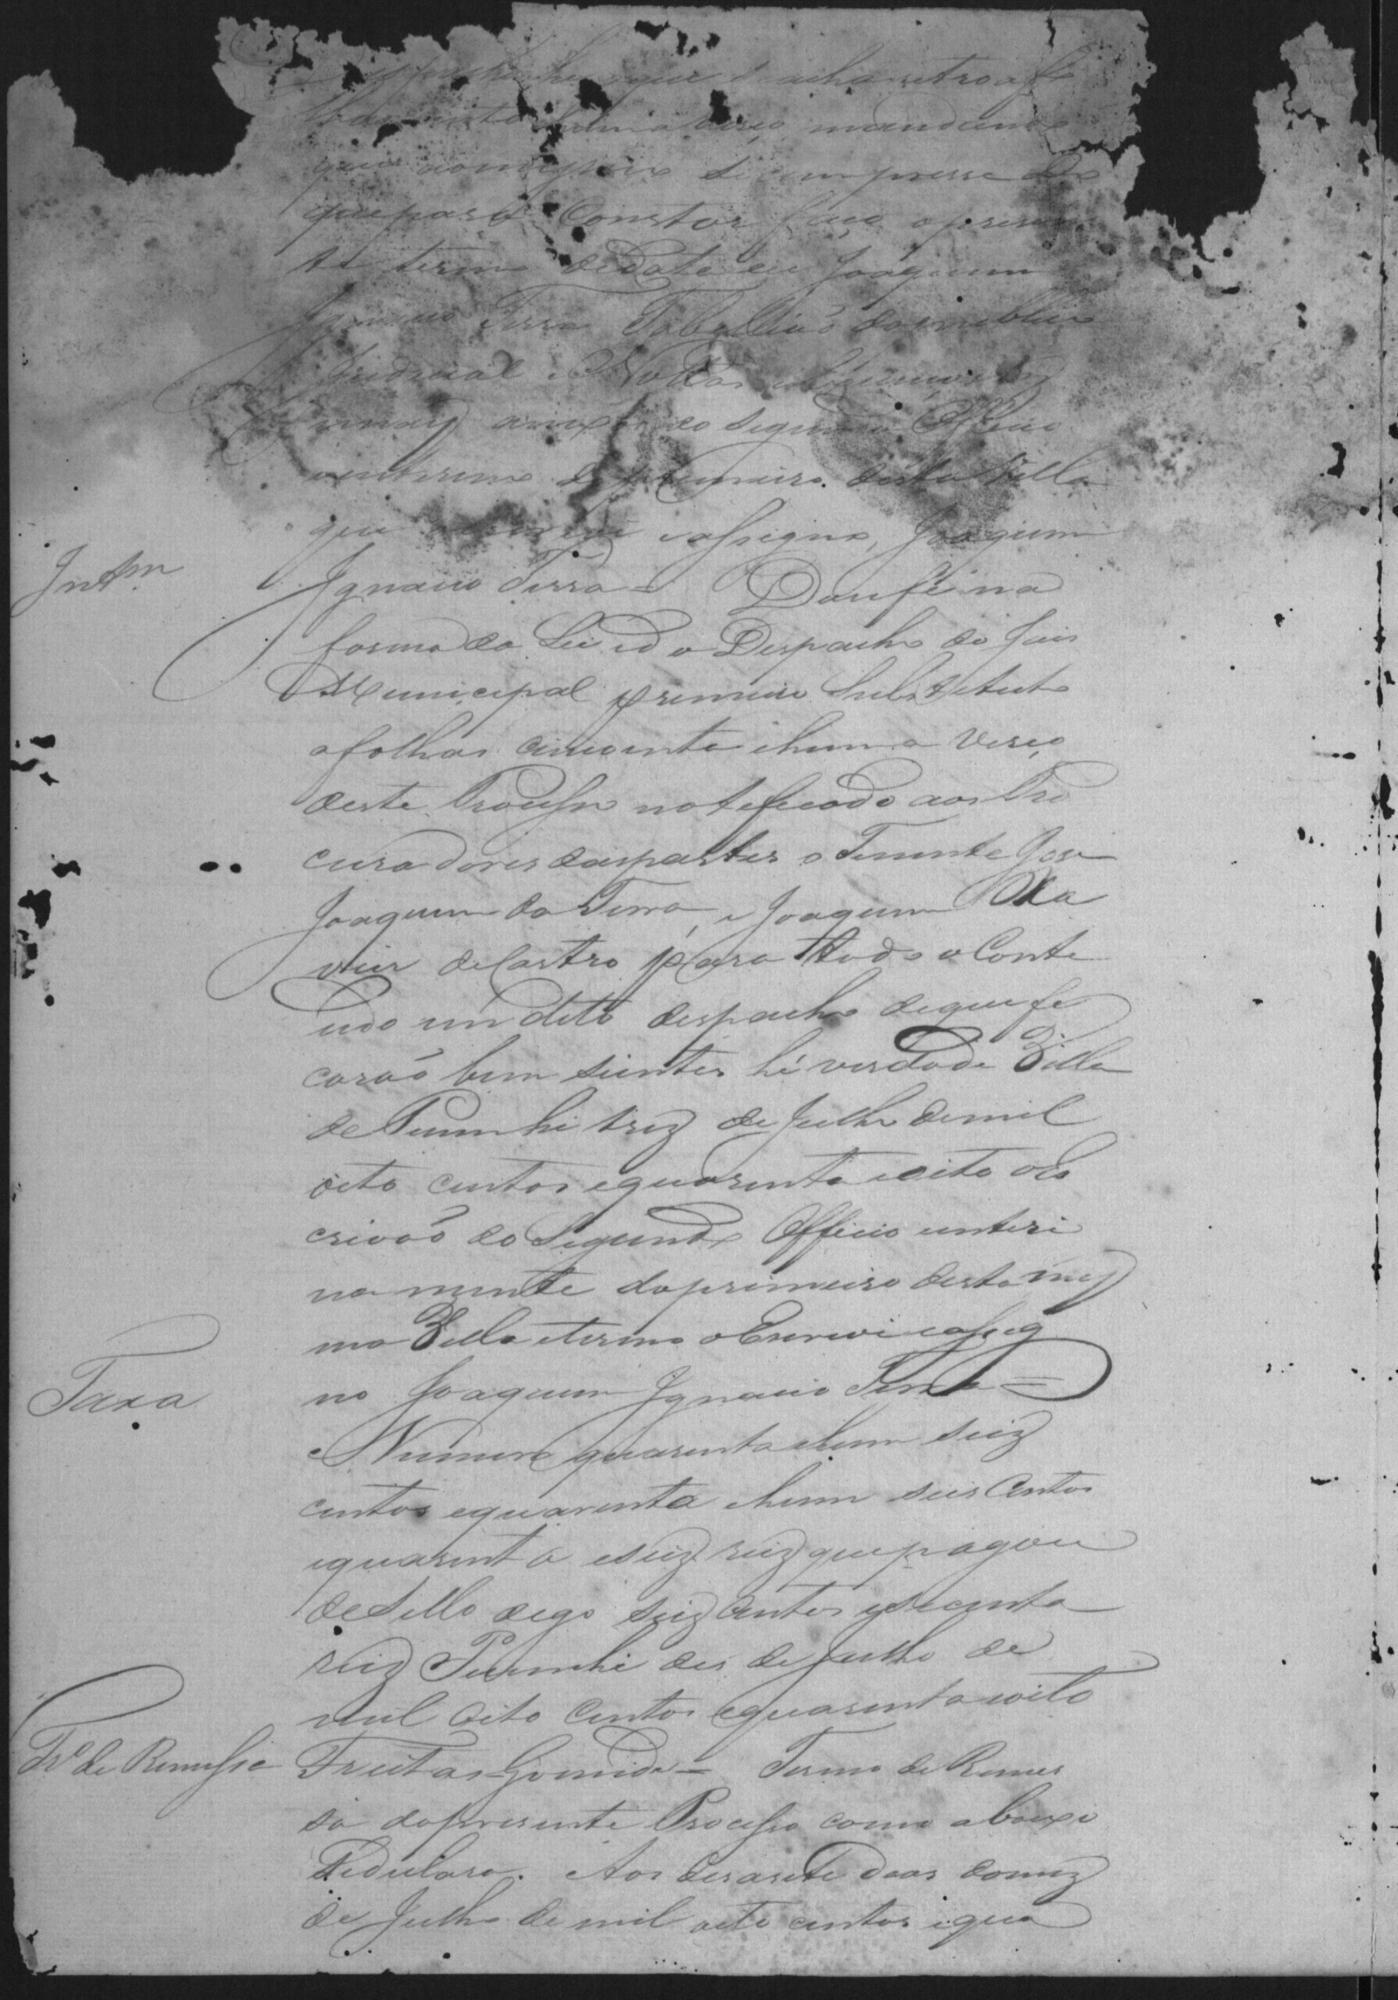 que se acha retro a f
mandando
que se cumprisse do
que para Constar faço o presen
te termo de data eu Joaquim
Ignacio Terra Tabelliaõ do publico
Judicial e Nottas
annexos do segundo Officio
do primeiro desta Villa
que e assigno, Joaquim
Intm.
Ignacio Terra = Dou fé na
forma da Lei e do Despacho do Juis
Municipal primeiro Substituto
a folhas cincoenta e huma verço
deste Processo notificado aos Pro
curadores das partes o Tenente Jose
Joaquim da Terra, e Joaquim Xa
vier de Castro para todo o Conte
udo em dito despacho de que fi
caraõ bem sientes hé verdade Villa
de Piumhi trez de Julho de mil
oito centos e quarenta e oito o Es
crivaõ do Segundo Officio enteri
na mente do primeiro desta mes
ma Villa e termo o Escrevi e assig
no Joaquim Ignacio Terra =
Taxa
Numero quarenta e hum seiz
centos e quarenta e hum seis Centos
e quarenta e seiz reiz que pagou
de Sello digo seiz centos e secenta
reiz Piumhi des de Julho de
mil oito Centos e quarenta e oito
Tr.º de Remessa
Freitas Gomide = Termo de Remes
sa do presente Processo como abaixo
se declara. Aos desasete dias do mez
de Julho de mil oito centos e qua